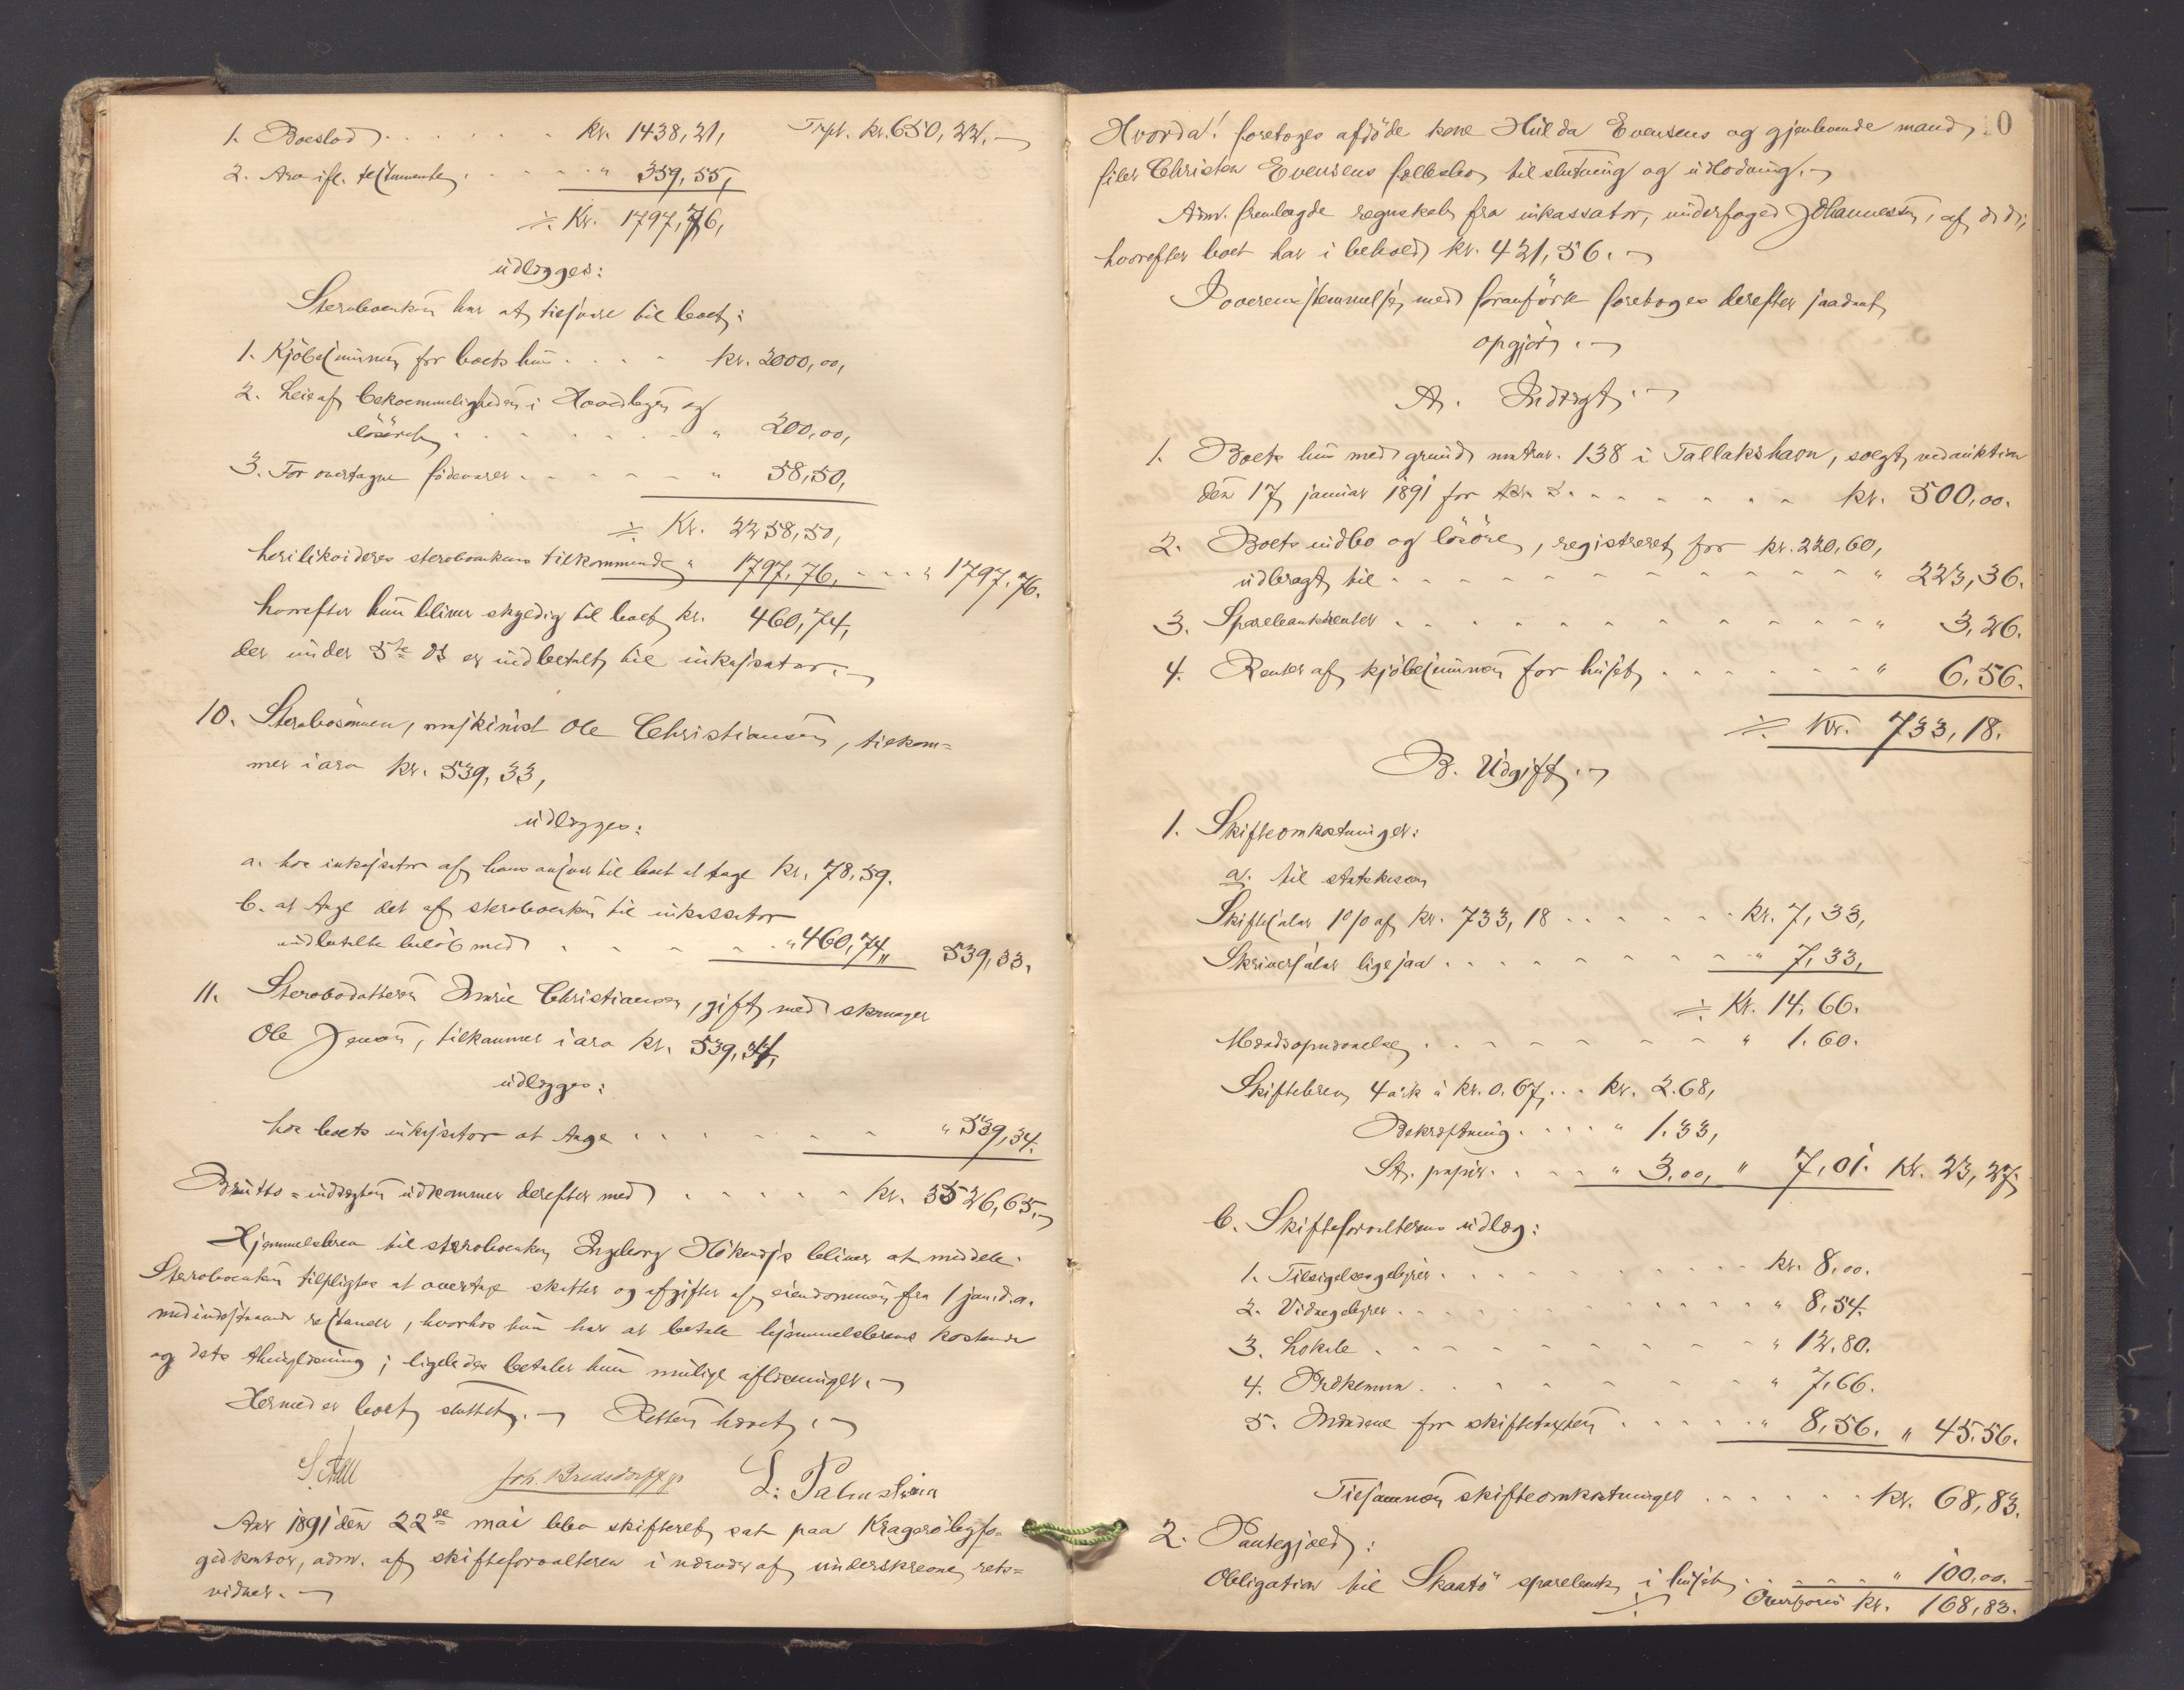 1. Boeslod . . . . . . kr. 1438,21, Trpt. kr. 650,22.
2. Arv ifl. testamente . . . . . " 359,55,
÷ Kr. 1797,76,
udlægges:
Stervboenken har at tilsvare til boet:
1. Kjöbesummen for boets hus . . . . kr. 2000,00,
2. Leie af bekvemmeligheden i Hovedbygn og
lösöret . . . . . . . " 200,00,
3. For overtagne födevarer . . . . . " 58,50,
÷ Kr. 2258,50,
heri likvideres stervboenkens tilkommende " 1797,76, . . . " 1797,76.
hvorefter hun bliver skyldig til boet kr. 460,74,
der under 5te ds er indbetalt til inkassator.
10. Stervbosönnen, maskinist Ole Christiansen, tilkom=
mer i arv kr. 539,33,
udlægges:
a. hos inkassator af hans ansvar til boet at tage kr. 78,59.
b. at tage det af stervboenken til inkassator
indbetalte belöb med . . . . . . " 460,74 " 539,33.
11. Stervbodatteren Marie Christiansen, gift med skomager
Ole Jensen, tilkommer i arv kr. 539,34,
udlægges:
hos boets inkassator at tage . . . . . . " 539,34.
Brutto=indtægten udkommer derefter med . . . . . kr. 3526,65.
Hjemmelsbrev til stervboenken Ingeborg bliver at meddele.
Stervboenken tilpligtes at overtage skatter og afgifter af eiendommen fra 1 jan. d.a.
med indestaaende restancer, hvorhos hun har at betale hjemmelsbrevets kostende
og dets thinglæsning; ligeledes betaler hun mulige aflæsninger.
Hermed er boet sluttet. Retten hævet.
Joh. Bredsdorff L. Palmström
Aar 1891 den 22de mai blev skifteret sat paa Kragerö byfo=
gedkontor, adm. af skifteforvalteren i nærvær af underskrevne rets=
vidner.
Hvorda! foretoges afdöde kone Hulda Evensens og gjenlevende mand,
filer Christen Evensens fællesbo til slutning og udlodning.
Adm. fremlagde regnskab fra inkassator, underfoged Johannessen, af d. d.,
hvorefter boet har i behold kr. 421,56.
I overensstemmelse med foranförte foretoges derefter saadant
opgjör.
A. Indtægt.
1. Boets hus med grund matr. 138 i Tallakshavn, solgt ved auktion
den 17 januar 1891 for . . . . . . . . kr. 500,00.
2. Boets indbo og lösöre, registreret for kr. 220,60,
udbragt til . . . . . . . . . . . . " 223,36.
3. Sparebankrenter . . . . . . . . . . . . " 3,26.
4. Renter af kjöbesummen for huset . . . . . . . " 6,56.
÷ Kr. 733,18.
B. Udgift.
1. Skifteomkostninger:
a. til statskassen
Skiftesalær 1 % af kr. 733,18 . . . . . . kr. 7,33,
Skriversalær ligesaa . . . . . . . . . " 7,33,
÷ Kr. 14,66.
Mændsopnævnelse . . . . . . . . " 1.60.
Skiftebrev 4 ark à kr. 0,67 . . . kr. 2.68,
Bekræftning . . . . " 1.33,
St. papir . . . . " 3,00, " 7,01. Kr. 23,27,
b. Skifteforvalterens udlæg:
1. Tilsigelsesgebyrer . . . . . . . . . . kr. 8,00.
2. Vidnegebyrer . . . . . . . . . . . " 8,54.
3. Lokale . . . . . . . . . . . " 12,80.
4. Prokemm . . . . . . . . . . " 7,66.
5. Mændene for skiftetaxten . . . . . " 8,56. " 45.56.
Tilsammen skifteomkostninger . . . . . . kr. 68,83.
2. Pantegjæld:
Obligation til Skaatö sparebank i huset . . . . . . " 100,00.
÷ Overföres kr. 168,83.